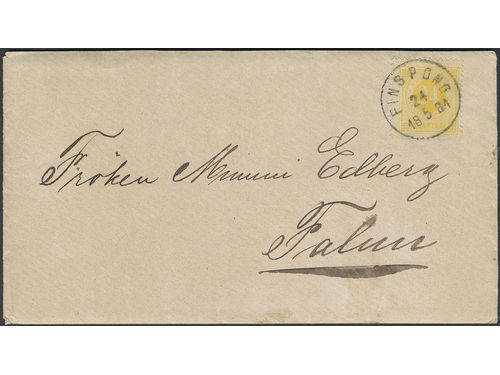 FINSPONG
24
18 5 81
Fröken Mimmi Edberg
Falun